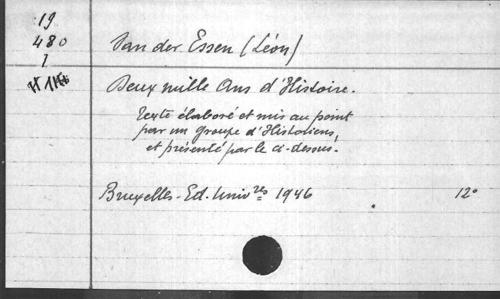 19
480
1
Van der Essen (Léon)
Deux mille Ans d'Histoire.
Texte élaboré et mis au point
par un groupe d'Historiens,
et présenté par le ci-dessus.
Bruxelles - Ed. Univ.res 1946 12°